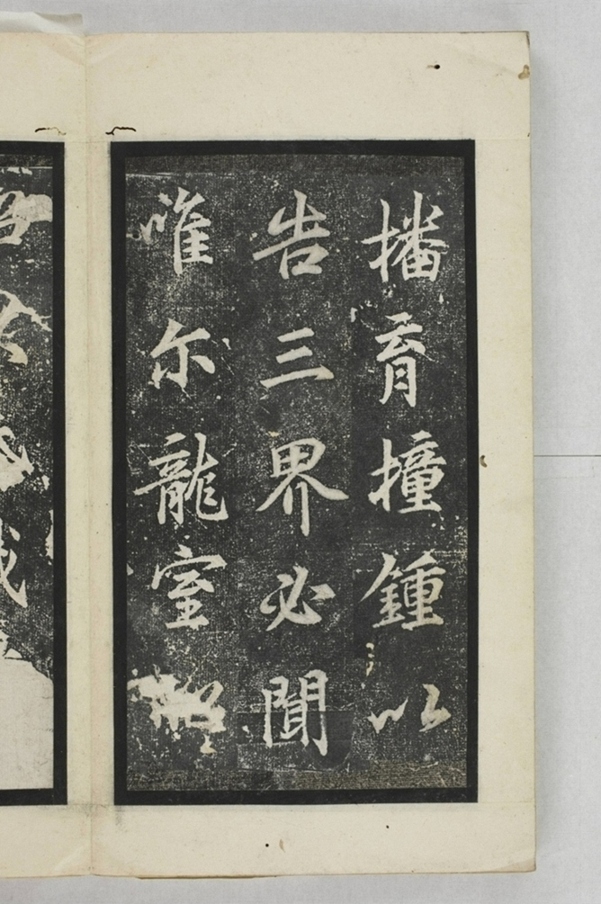 播育撞鍾以
告三界必聞
唯尔龍室